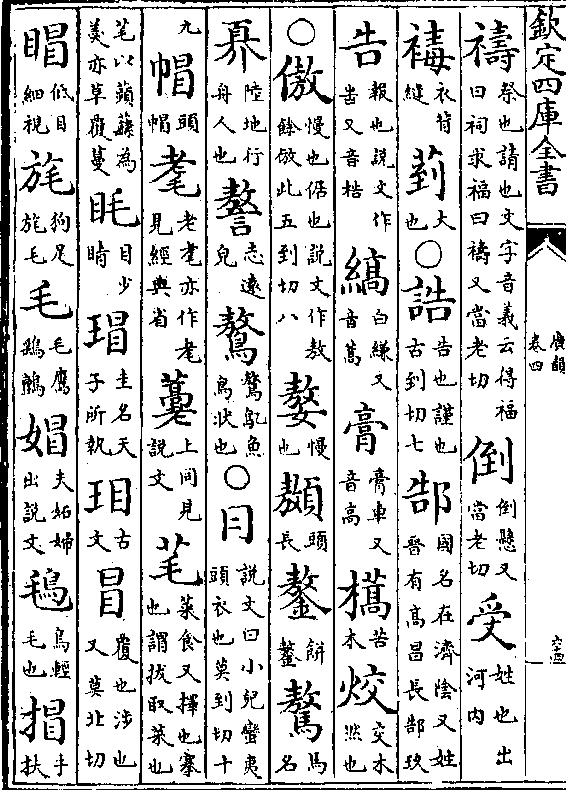 欽定四庫全書
廣韻
卷四
禱祭也請也文字音義云得福曰祠求福曰禱又當老切倒倒懸又當老切受姓也出河内
䙃衣背縫菿大也○誥告也謹也古到切七郜國名在濟陰又姓晉有高昌長郜玖
告報也說文作又音梏縞白縑又音暠膏膏車又音高槗苦木烄交木然也
○傲慢也倨也說文作敖餘倣此五到切八嫯慢也䫨頭長鏊餅鏊驁馬名
奡陸地行舟人也謷志遠皃鷔鷔鳥魚鳥狀也○冃說文曰小兒蠻夷頭衣也莫到切十
九帽頭帽耄老耄亦作老見經典省上同見說文芼菜食又擇也搴也謂拔取菜也
芼以蘋蘩為羙亦草覆蔓眊目少睛瑁圭名天子所執古文冒覆也涉也又莫北切
低目細視旄狗足旄毛毛毛鷹媢夫妬婦出說文鳥輕毛也手扶